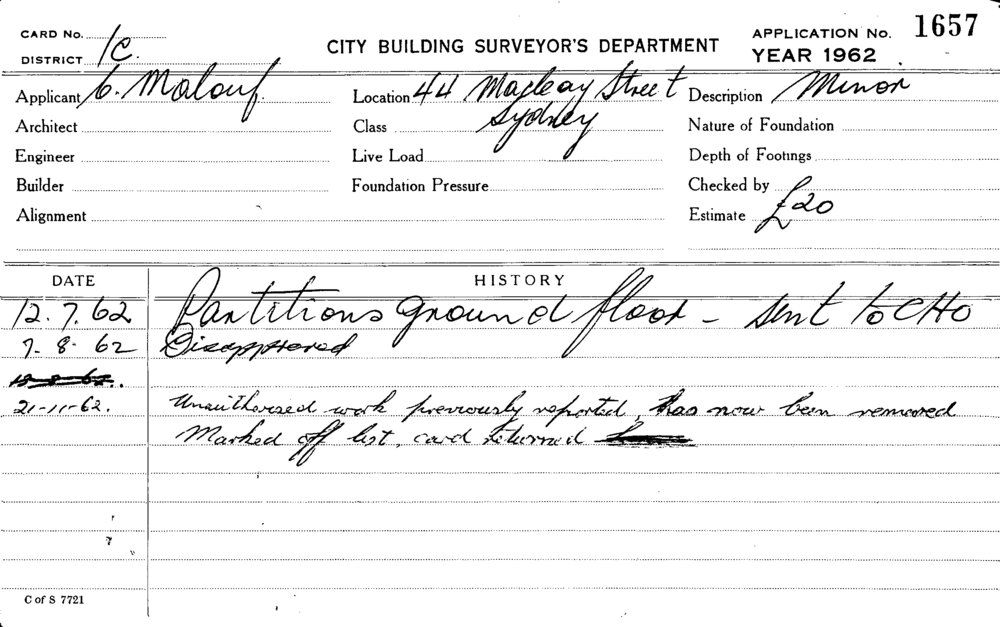 CARD No.
DISTRICT 1C
CITY BUILDING SURVEYOR'S DEPARTMENT
APPLICATION No. 1657
YEAR 1962
Applicant C. Malouf
Location 44 Macleay Street
Sydney
Description Minor
Architect
Class
Nature of Foundation
Engineer
Live Load
Depth of Footings
Builder
Foundation Pressure
Checked by
Alignment
Estimate £20
DATE HISTORY
12.7.62 Partitions ground floor - sent to CHO
7-8-62 Disapproved
21-11-62. Unauthorised work previously reported, has now been removed
Marked off list, card returned
C of S 7721